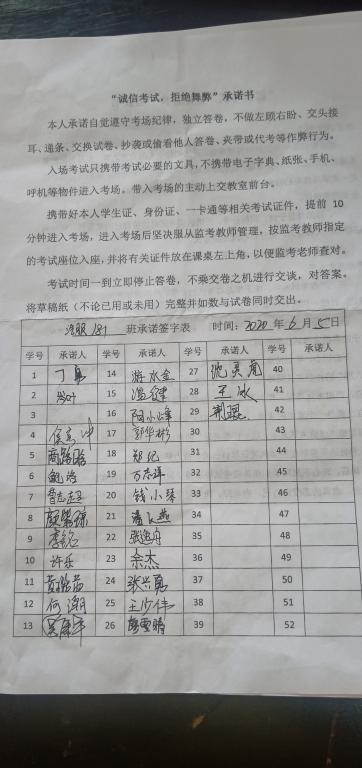 “诚信考试，拒绝舞弊”承诺书
本人承诺自觉遵守考场纪律，独立答卷，不做左顾右盼、交头接
耳、递条、交换试卷、抄袭或偷看他人答卷、夹带或代考等作弊行为。
入场考试只携带考试必要的文具，不携带电子字典、纸张、手机、
呼机等物件进入考场。带入考场的主动上交教室前台。
携带好本人学生证、身份证、一卡通等相关考试证件，提前 10
分钟进入考场，进入考场后坚决服从监考教师管理，按监考教师指定
的考试座位入座，并将有关证件放在课桌左上角，以便监考老师查对。
考试时间一到立即停止答卷，不乘交卷之机进行交谈，对答案。
将草稿纸（不论已用或未用）完整并如数与试卷同时交出。
181 班承诺签字表 时间：2020 年 6 月 5 日
学号 承诺人 学号 承诺人 学号 承诺人 学号 承诺人
1 14 游水金 27 沈灵虎 40
2 15 温健 28 王冰 41
3 16 29 荆琨 42
4 17 郭华彬 30 43
5 18 郑纪 31 44
6 鲍浩 19 万志洋 32 45
7 20 钱小琴 33 46
8 21 潘飞燕 34 47
9 李铭 22 35 48
10 许乐 23 余杰 36 49
11 24 张兴勇 37 50
12 何潮 25 王少伟 38 51
13 吴康平 26 廖雪晴 39 52